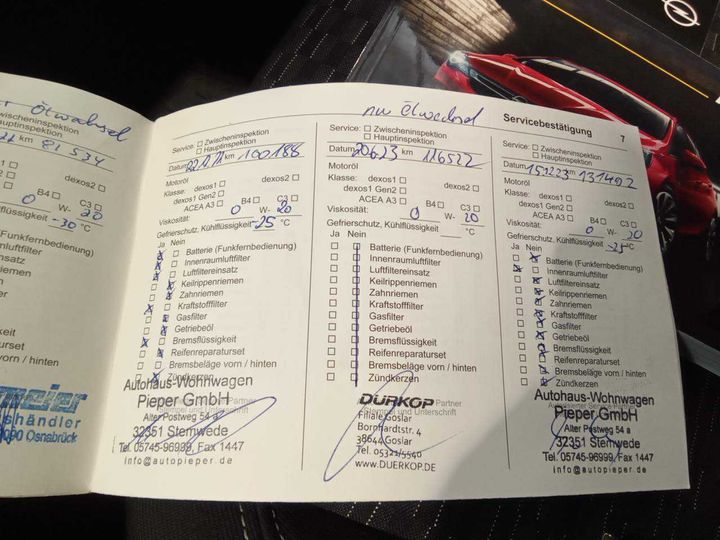 Ölwechsel
Zwischeninspektion
Hauptinspektion
81 534
dexos2
B4 C3
0 W- 20
flüssigkeit -30 °C
(Funkfernbedienung)
luftfilter
einsatz
keit
vorn / hinten
meier
händler
Osnabrück
Service: Zwischeninspektion
Hauptinspektion
Datum km 100188
Motoröl
Klasse: dexos1 dexos2
dexos1 Gen2
ACEA A3 B4 C3
Viskosität: 0 W- 20
Gefrierschutz, Kühlflüssigkeit -25 °C
Ja Nein
Batterie (Funkfernbedienung)
Innenraumluftfilter
Luftfiltereinsatz
Keilrippenriemen
Zahnriemen
Kraftstofffilter
Gasfilter
Getriebeöl
Bremsflüssigkeit
Reifenreparaturset
Bremsbeläge vorn / hinten
Zündkerzen
Autohaus-Wohnwagen
Pieper GmbH
Alter Postweg 54 a
32351 Stemwede
Tel. 05745-96999, Fax 1447
info@autopieper.de
nur Ölwechsel
Service: Zwischeninspektion
Hauptinspektion
Datum 20.6.23 km 116522
Motoröl
Klasse: dexos1 dexos2
dexos1 Gen2
ACEA A3 B4 C3
Viskosität: 0 W- 20
Gefrierschutz, Kühlflüssigkeit °C
Ja Nein
Batterie (Funkfernbedienung)
Innenraumluftfilter
Luftfiltereinsatz
Keilrippenriemen
Zahnriemen
Kraftstofffilter
Gasfilter
Getriebeöl
Bremsflüssigkeit
Reifenreparaturset
Bremsbeläge vorn / hinten
Zündkerzen
DÜRKOP Partner
Stempel und Unterschrift
Filiale Goslar
Bornhardtstr. 4
38644 Goslar
Tel. 05321/5540
www.DUERKOP.DE
Servicebestätigung 7
Service: Zwischeninspektion
Hauptinspektion
Datum 15.12.23 km 131492
Motoröl
Klasse: dexos1 dexos2
dexos1 Gen2
ACEA A3 B4 C3
Viskosität: 0 W- 20
Gefrierschutz, Kühlflüssigkeit -25 °C
Ja Nein
Batterie (Funkfernbedienung)
Innenraumluftfilter
Luftfiltereinsatz
Keilrippenriemen
Zahnriemen
Kraftstofffilter
Gasfilter
Getriebeöl
Bremsflüssigkeit
Reifenreparaturset
Bremsbeläge vorn / hinten
Zündkerzen
Autohaus-Wohnwagen
Pieper GmbH
Alter Postweg 54 a
32351 Stemwede
Tel. 05745-96999, Fax 1447
info@autopieper.de